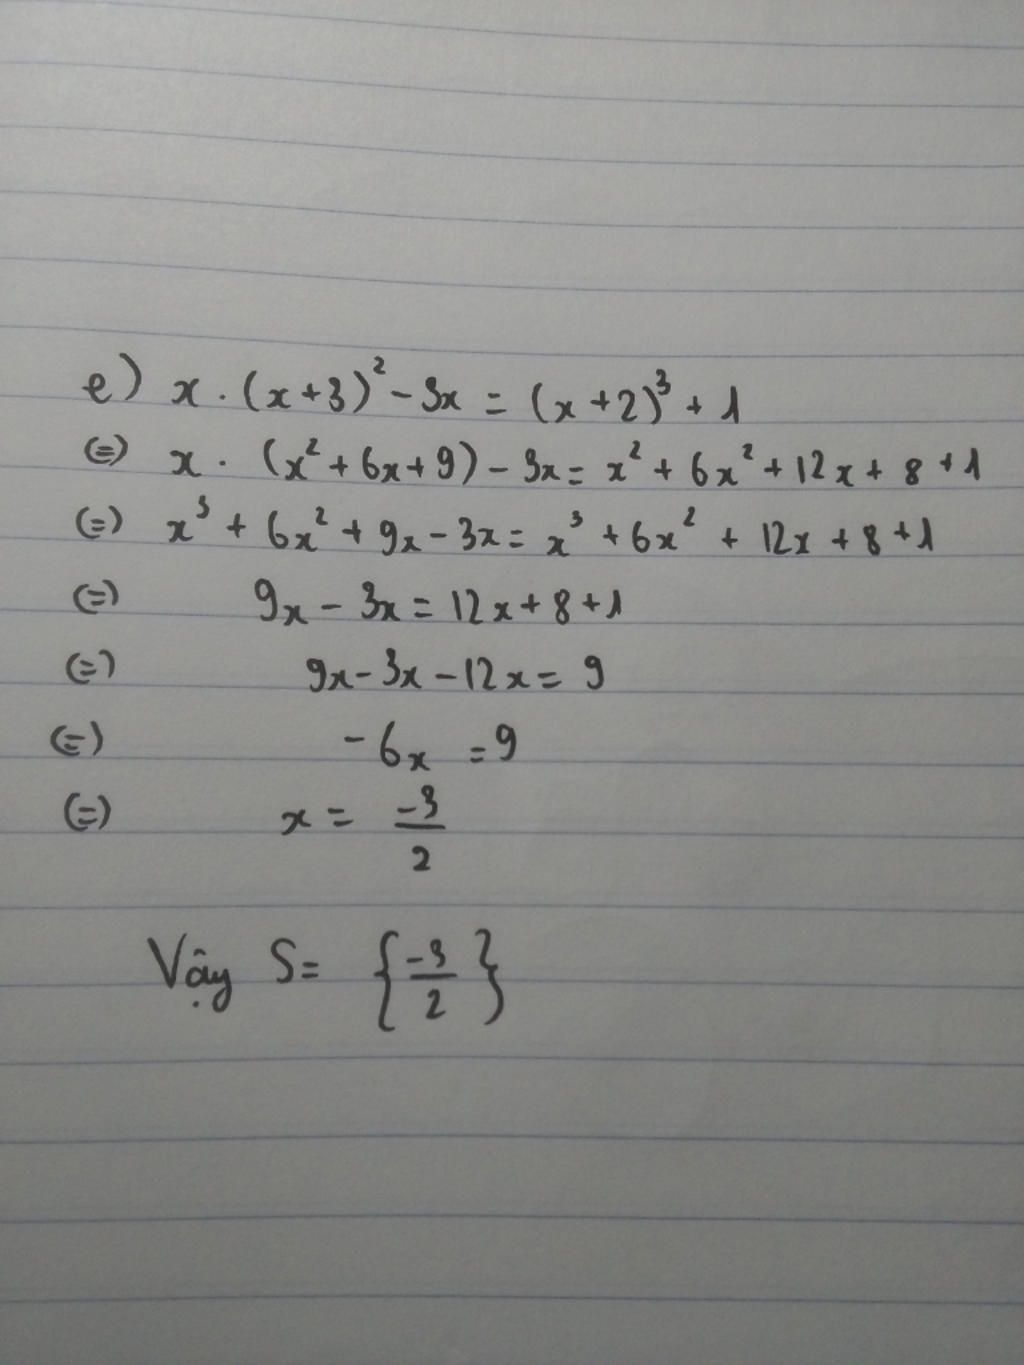 e) x . (x+3)² - 3x = (x+2)³ + 1
(=) x . (x² + 6x + 9) - 3x = x² + 6x² + 12x + 8 + 1
(=) x³ + 6x² + 9x - 3x = x³ + 6x² + 12x + 8 + 1
(=) 9x - 3x = 12x + 8 + 1
(=) 9x - 3x - 12x = 9
(=) -6x = 9
(=) x = -3/2
Vậy S = {-3/2}